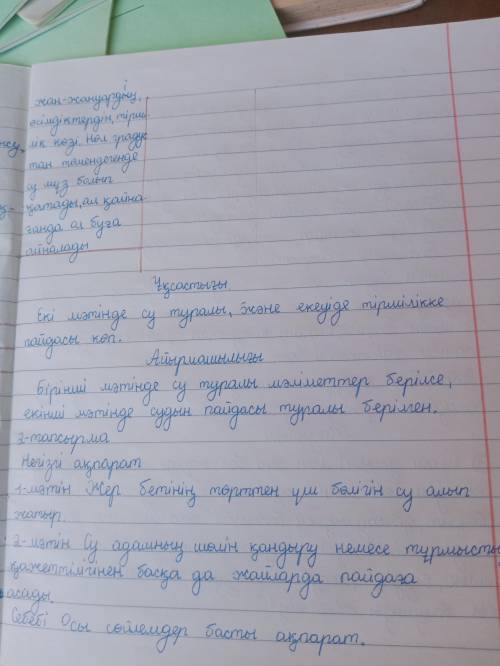 жан-жануардың,
өсімдіктердің, тірші
лік көзі. Нөл градус
тан төмендегенде
су мұз болып
қатады, ал қайна
ғанда ол буға
айналады
Ұқсастығы
Екі мәтінде су туралы, және екеуіде тірмілікке
пайдасы көп.
Айырмашылығы
Бірінші мәтінде су туралы мәліметтер берілсе,
екінші мәтінде судын пайдасы туралы берілген.
3-тапсырма
Негізгі ақпарат
1-мәтін Жер бетінің төрттен үш бөлігін су алып
жатыр.
2-мәтін Су адамның шөлін қандыру немесе тұрмыстық
қажеттілігінен басқа да жайларда пайдаға
асады.
Себебі Осы сөйлемдер басты ақпарат.